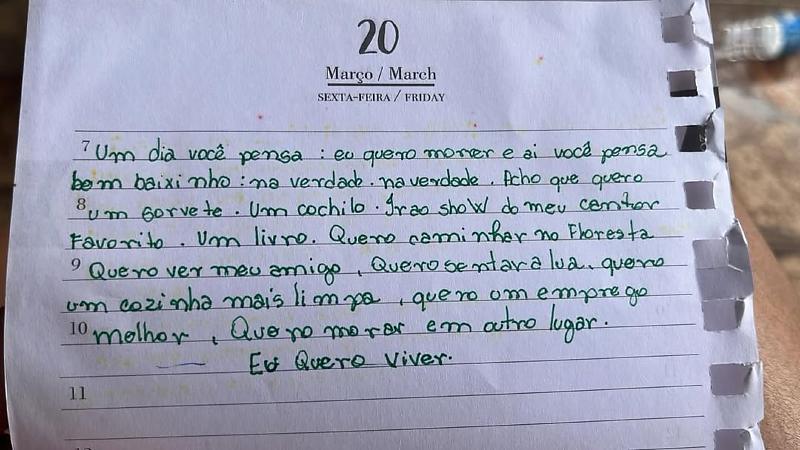 20
Março / March
SEXTA-FEIRA / FRIDAY
7 Um dia você pensa : eu quero morrer e ai você pensa
bem baixinho : na verdade . na verdade . Acho que quero
8 um sorvete . Um cochilo . Ir ao show do meu cantor
Favorito . Um livro . Quero caminhar na Floresta
9 Quero ver meu amigo , Quero sentar a lua . quero
um cozinha mais limpa , quero um emprego
10 melhor , Quero morar em outro lugar .
Eu Quero viver .
11